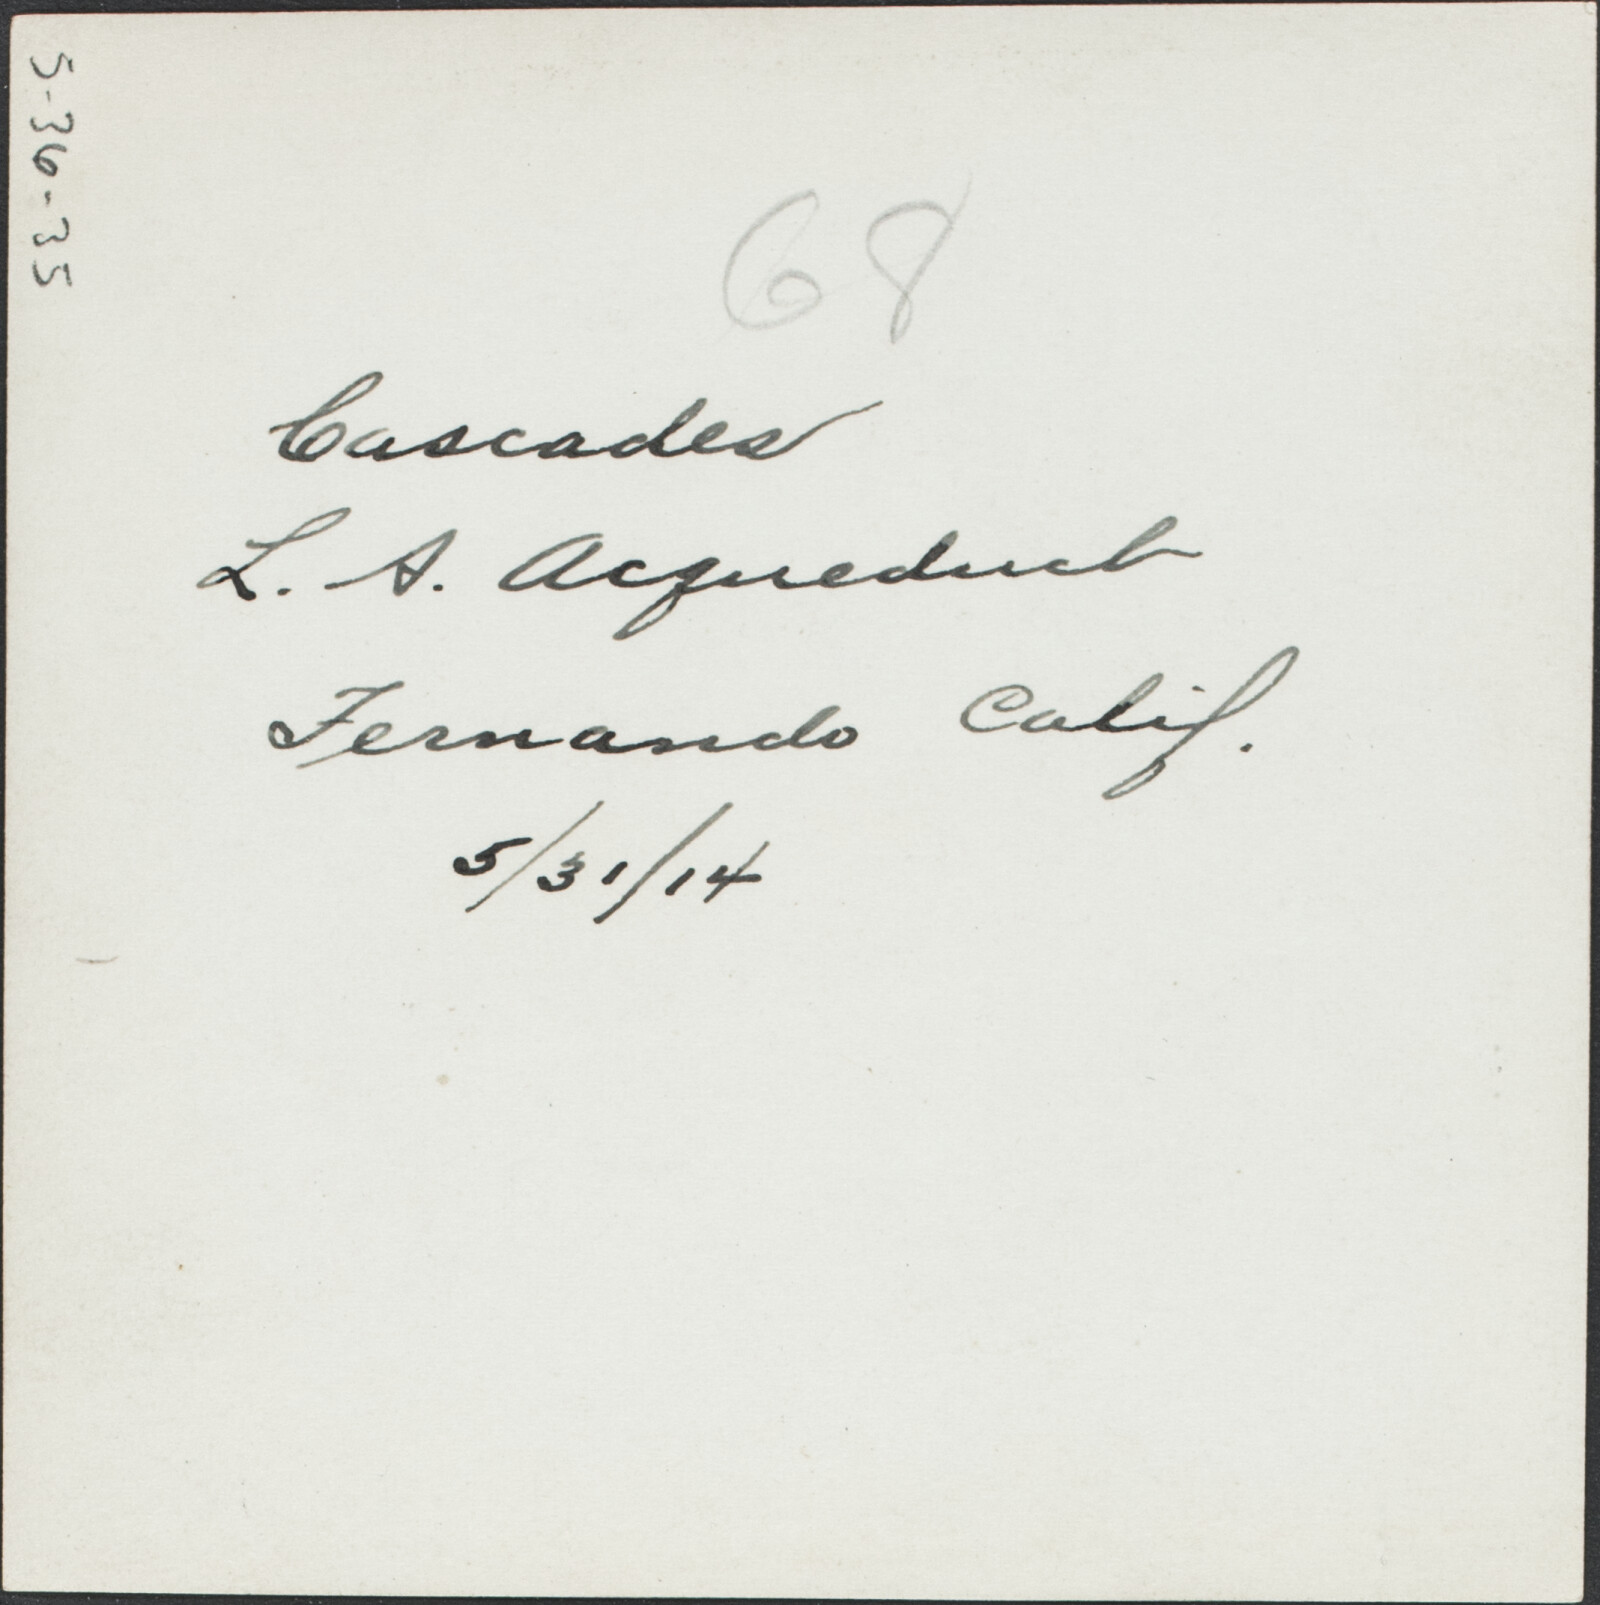 5-36-35
68
Cascades
L. A. Acqueduct
Fernando Calif.
5/31/14